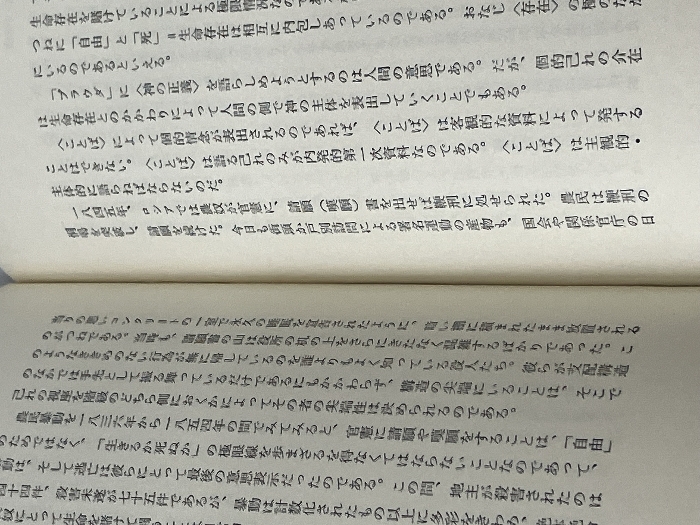 生命存在を賭けていることによる極限情況なので
つねに「自由」と「死」＝生命存在は相互に内包しあっているのである。おなじく〈存在〉の極の
にいるのであるといえる。
「プラウダ」に〈神の正義〉を語らしめようとするのは人間の意思である。だが、個的己れの介在
は生命存在とのかかわりによって人間の側で神の主体を表出していくことでもある。
〈ことば〉によって個的情念が表出されるのであれば、〈ことば〉は客観的な資料によって発する
ことはできない。〈ことば〉は語る己れのみが内発的第一次資料なのである。〈ことば〉は主観的・
主体的に語られねばならないのだ。
一八四五年、ロシアでは農奴が官憲に、請願（嘆願）書を出せば鞭刑に処せられた。農民は鞭刑の
を覚悟し、請願を続けた。今日も街頭か戸別訪問による署名運動の運動も、国会や関係官庁の日
当りの悪いコンクリートの一室で永久の睡眠を宣告されたように、白い棚に積まれたまま放置される
のがつねである。当時も、請願書の山は役所の机の上をさらにきたなく乱雑するばかりであった。こ
のようなききめのない行為が無に帰しているのを誰よりもよく知っている役人たち。彼らが支配構造
のなかでは手先として振る舞っているだけであるにもかかわらず、構造の尖端にいることは、そこで
己れの視座を権威のどちら側におくかによってその者の尖端性は決められるのである。
農民暴動を一八三六年から一八五四年の間でみてみると、官憲に請願や嘆願をすることは、「自由」
のためではなく、「生きるか死ぬか」の極限線を歩まざるを得なくてはならないことなのであって、
動は、そして逃亡は彼らによって最後の意思表示だったのである。この間、地主が殺害されたのは
四十四件、殺害未遂が七十五件であるが、暴動は計数化されたもの以上に多彩をきわめ、
奴にとって生命を賭けて